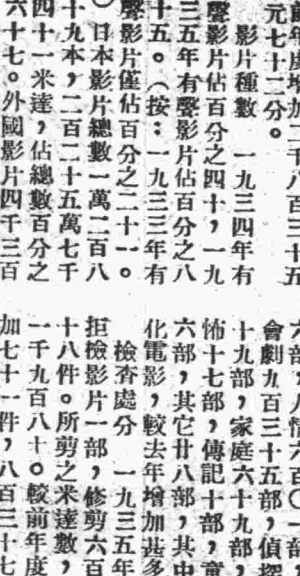 年度增加二千八百三十五
元七十二分。
影片種數　一九三四年有
聲影片佔百分之四十，一九
三五年有聲影片佔百分之八
十五。（按：一九三三年有
聲影片僅佔百分之二十一。
）日本影片總數一萬二百八
十九本，二百二十五萬七千
四十一米達，佔總數百分之
六十七。外國影片四千三百
六部，人情六百〇一部，
會劇九百三十五部，偵探
十九部，家庭六十九部，
怖十七部，傳記十部，童
六部，其它廿八部，其中
化電影，較去年增加甚多
檢查處分　一九三五年
拒檢影片一部，修剪六百
十八件。所剪之米達數，
一千九百八十。較前年度
加七十一件，八百三十七